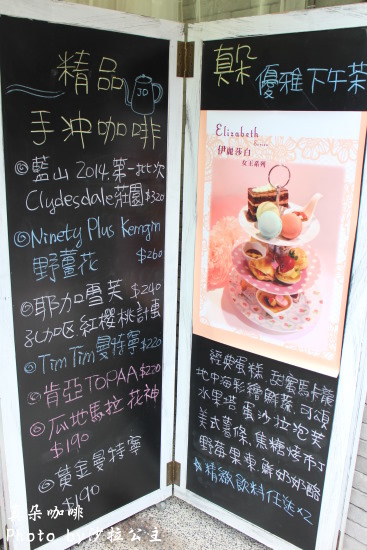 精品
手沖咖啡
JO
◎藍山2014.第一批次
Clydesdale莊園$320
◎Ninety Plus Kemgin
野薑花 $260
◎耶加雪芙 $240
孔加區紅櫻桃計畫
◎TimTim曼特寧$220
◎肯亞TOPAA $220
◎瓜地馬拉 花神
$190
◎黃金曼特寧
$190
優雅下午茶
Elizabeth
伊麗莎白
女王系列
經典蛋糕.甜蜜馬卡龍
地中海彩繪鮮蔬.可頌
水果塔.蜜沙拉泡芙
美式薯條.焦糖烤布丁
野莓果凍.鮮奶奶酪
精緻飲料任選x2
朵咖啡
Photo by 拉公主